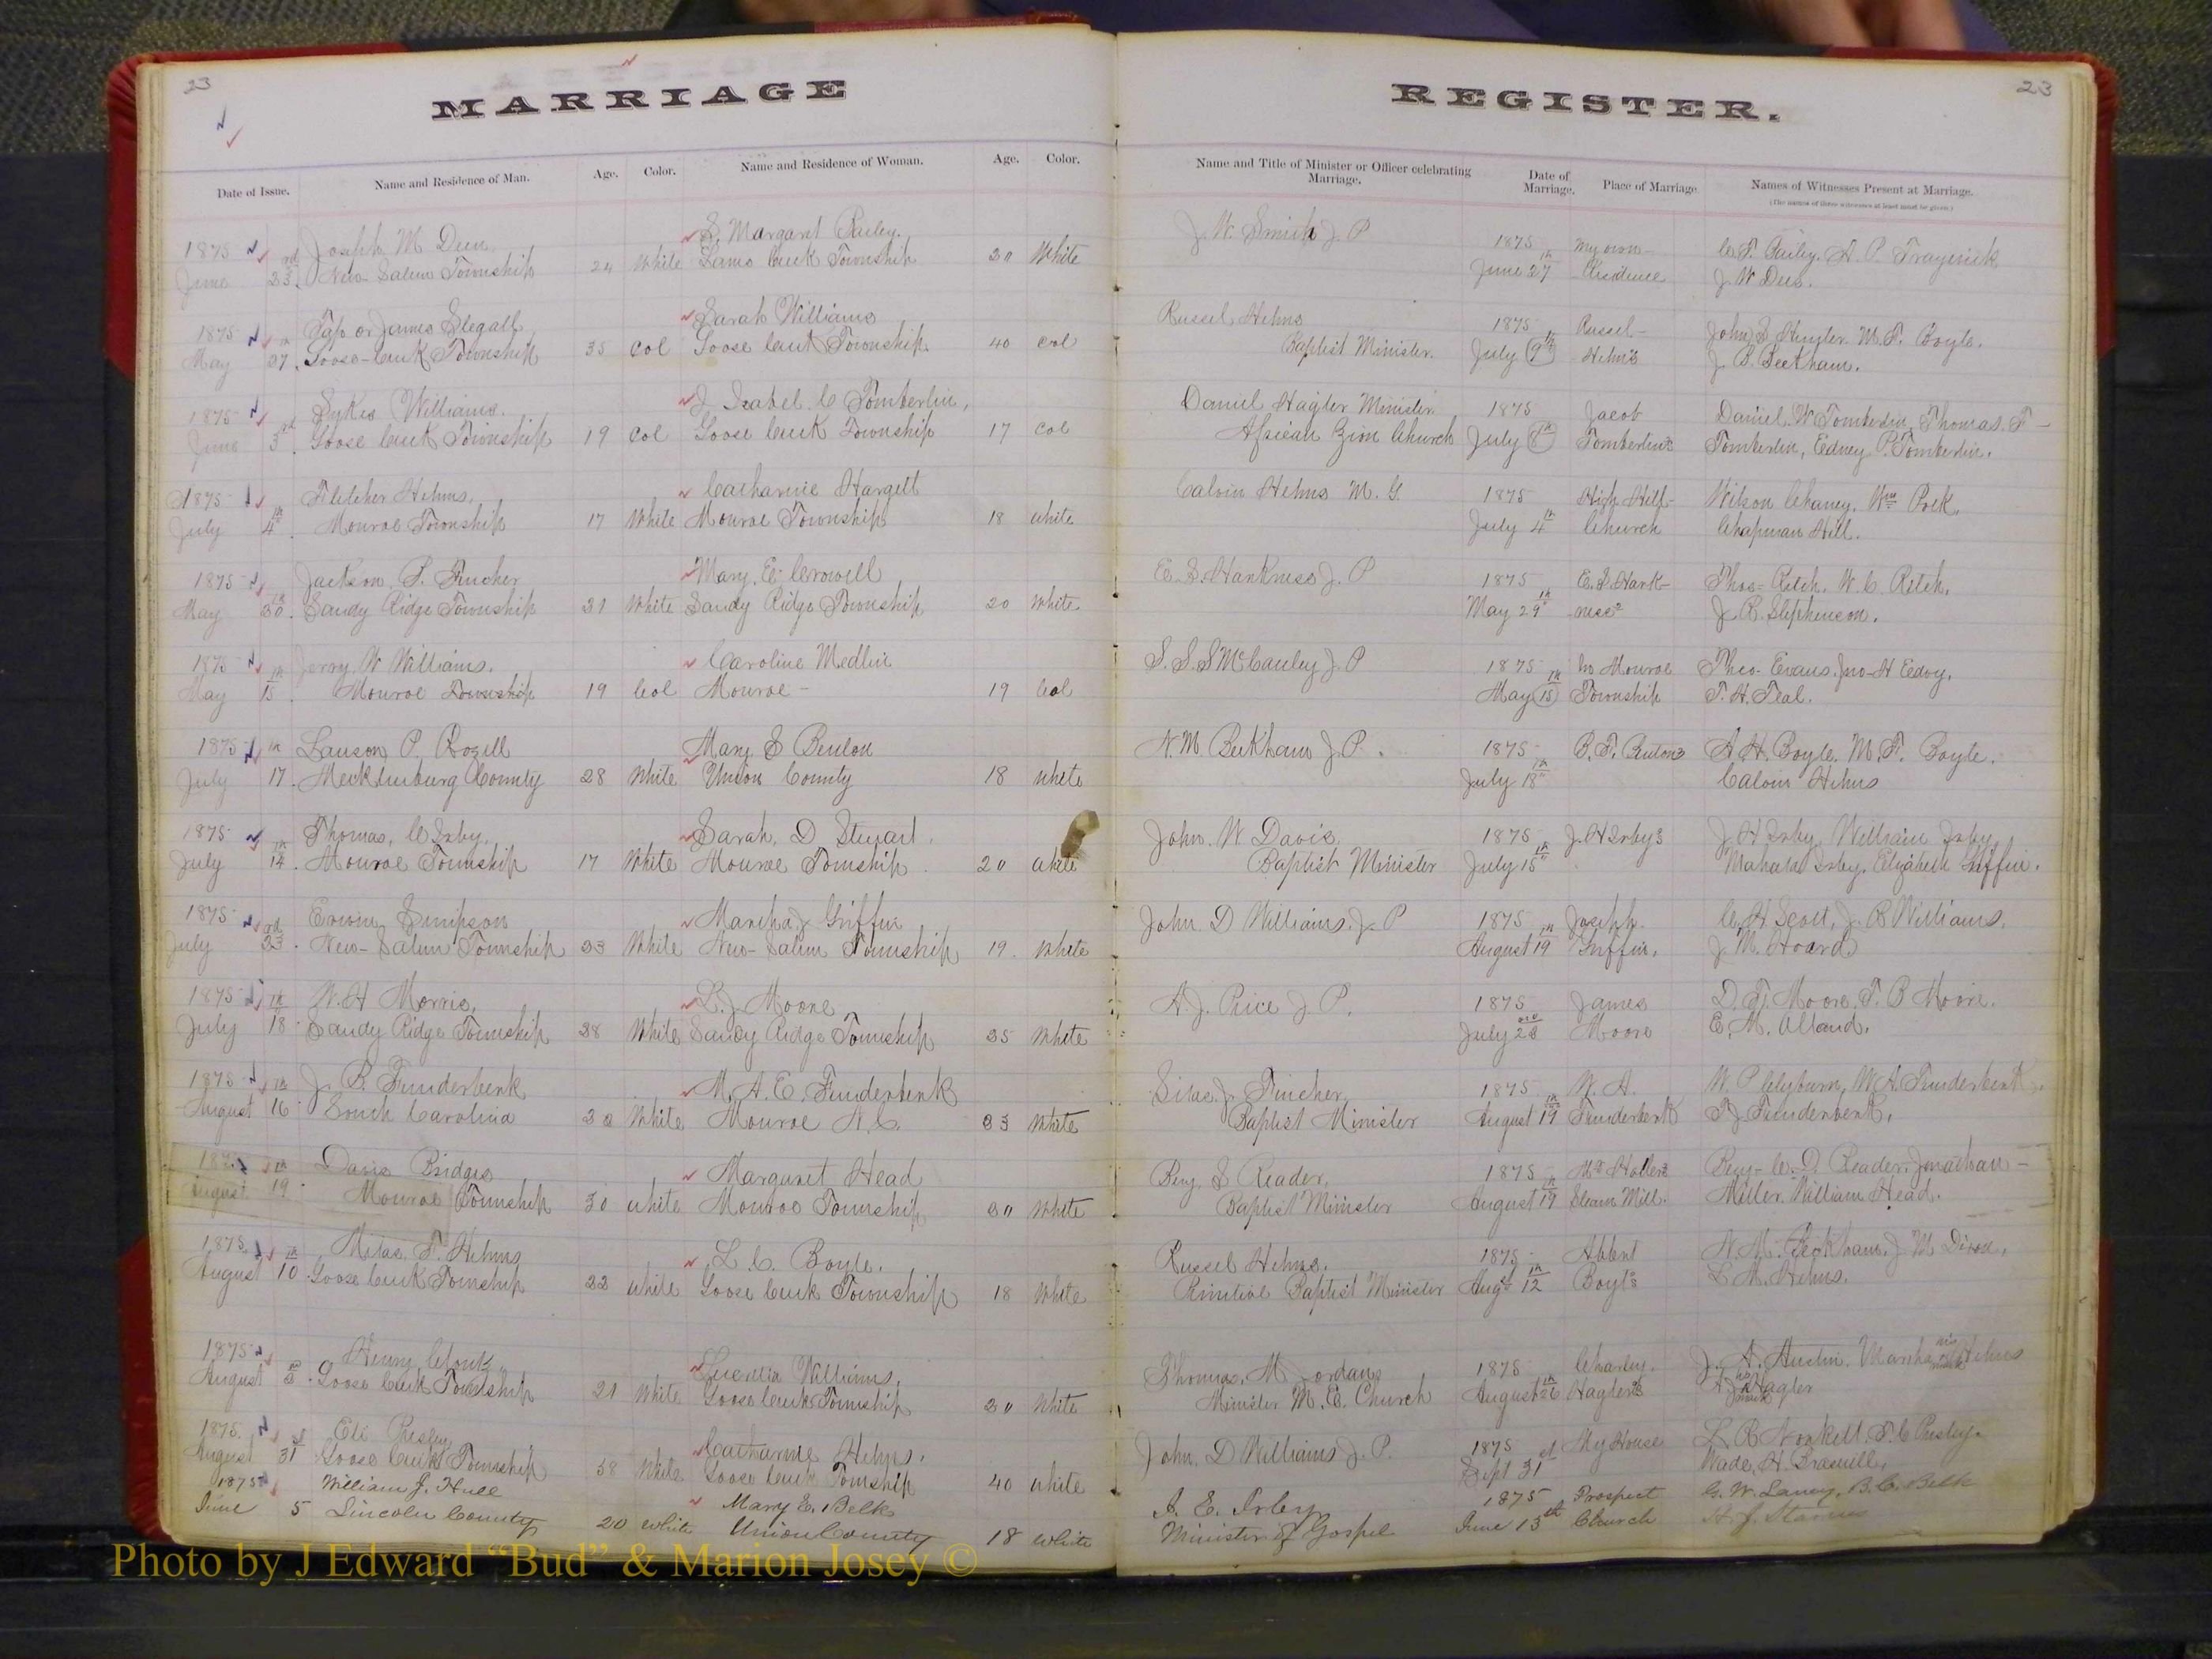 23
MARRIAGE
Date of Issue. Name and Residence of Man. Age. Color. Name and Residence of Woman. Age. Color.
1875 Joseph M S. Margaret
June 23rd New Salem Township 24 White Township 20 White
1875 or James Stegall Sarah Williams
May 27th Goose Creek Township 35 Col Goose Creek Township 40 Col
1875 Sykes Williams. J Isabel C Tomberlin,
June 3rd Goose Creek Township 19 Col Goose Creek Township 17 Col
1875 Fletcher Helms, Catharine Hargett
July 4th Monroe Township 17 White Monroe Township 18 White
1875 Jackson, S. Fincher Mary, E. Crowell
May 30th Sandy Ridge Township 21 White Sandy Ridge Township 20 White
1875 Jerry W Williams. Caroline Medlin
May 15th Monroe Township 19 Col Monroe - 19 Col
1875 P. Rozell Mary E Benton
July 17th Mecklenburg County 28 White Union County 18 White
1875 Thomas, C Irby, Sarah, D Stewart.
July 14th Monroe Township 17 White Monroe Township 20 White
1875 Simpson Martha J Griffin
July 23rd New-Salem Township 23 White New-Salem Township 19. White
1875 W. H Morris, L. J. Moore
July 18th Sandy Ridge Township 28 White Sandy Ridge Township 25 White
1875 Funderburk M. A. E. Funderburk
August 16th South Carolina White Monroe N. C. 33 White
Davis Bridges Margaret Head
August 19th Monroe Township 30 White Monroe Township White
1875 Milas. F. Helms L. C. Boyle.
August 10th Goose Creek Township 22 White Goose Creek Township 18 White
1875 Henry Williams,
August Goose Creek Township 21 White Goose Creek Township 20 White
1875. Eli Presley Catharine Helms.
August 31st Goose Creek Township 58 White Goose Creek Township 40 White
1875 William J. Hull Mary E. Belk
June 5 Lincoln County 20 White Union County 18 White
REGISTER.
23
Name and Title of Minister or Officer celebrating Marriage. Date of Marriage. Place of Marriage. Names of Witnesses Present at Marriage.
(The names of three witnesses at least must be given.)
J. W. Smith J. P 1875 My own-
June 27th Residence J. W
Russel Helms 1875 Russel- M. F. Boyle.
Baptist Minister. July 9th Helms J. B. Beckham.
Daniel Hagler Minister 1875 Jacob Daniel. W Tomberlin, Thomas. F-
African Zion Church July 8th Tomberlins Tomberlin, Edney P. Tomberlin.
Calvin Helms M. G. 1875 High Hill- Wilson Chaney. Wm Polk,
July 4th Church Chapman Hill.
E. S. Harkness J. P 1875 E. S. Hark- Thos- Ritch. W. C. Ritch,
May 29th ness J. R. Stephenson.
S. S. S McCauley J. P 1875 In Monroe Evans. Jno-H
May 15th Township T. H. Teal.
N. M Beckham J. P. 1875 A. H. Boyle. M. F. Boyle.
July 18th Calvin Helms
John. W. Davis 1875 J. H Irbys J. H Irby, William Irby,
Baptist Minister July 15th Mahala Irby, Elizabeth Griffin.
John. D Williams. J. P 1875 Joseph. C. H. Scott, J. R Williams.
August 19th Griffin.
A. J. Price J. P. 1875 James D. F. Moore. T. B Moore.
July Moore E. M.
Silas J. Fincher 1875 W. A. W. P Clyburn, W. A. Funderburk
Baptist Minister August 19th Funderburk Funderburk.
Benj. S Reader. 1875 Benj- C. D. Reader. Jonathan-
Baptist Minister August 19th Steam Mill. Miller. William Head.
Russel Helms. 1875 N. M. Beckham, J M
Primitive Baptist Minister Augst 12th Boyls L. M. Helms.
Thomas, M Jordan 1875 Charley. J. A. Austin. Martha his mark Helms
Minister M. E. Church August 26th Haglers his mark Hagler
John. D Williams J. P. 1875 My House L R
Sept 31st Wade, H. Braswell,
1875 Prospect G. W. Laney, B. C. Belk
Minister of Gospel June 13th Church
Photo by J Edward “Bud” & Marion Josey ©